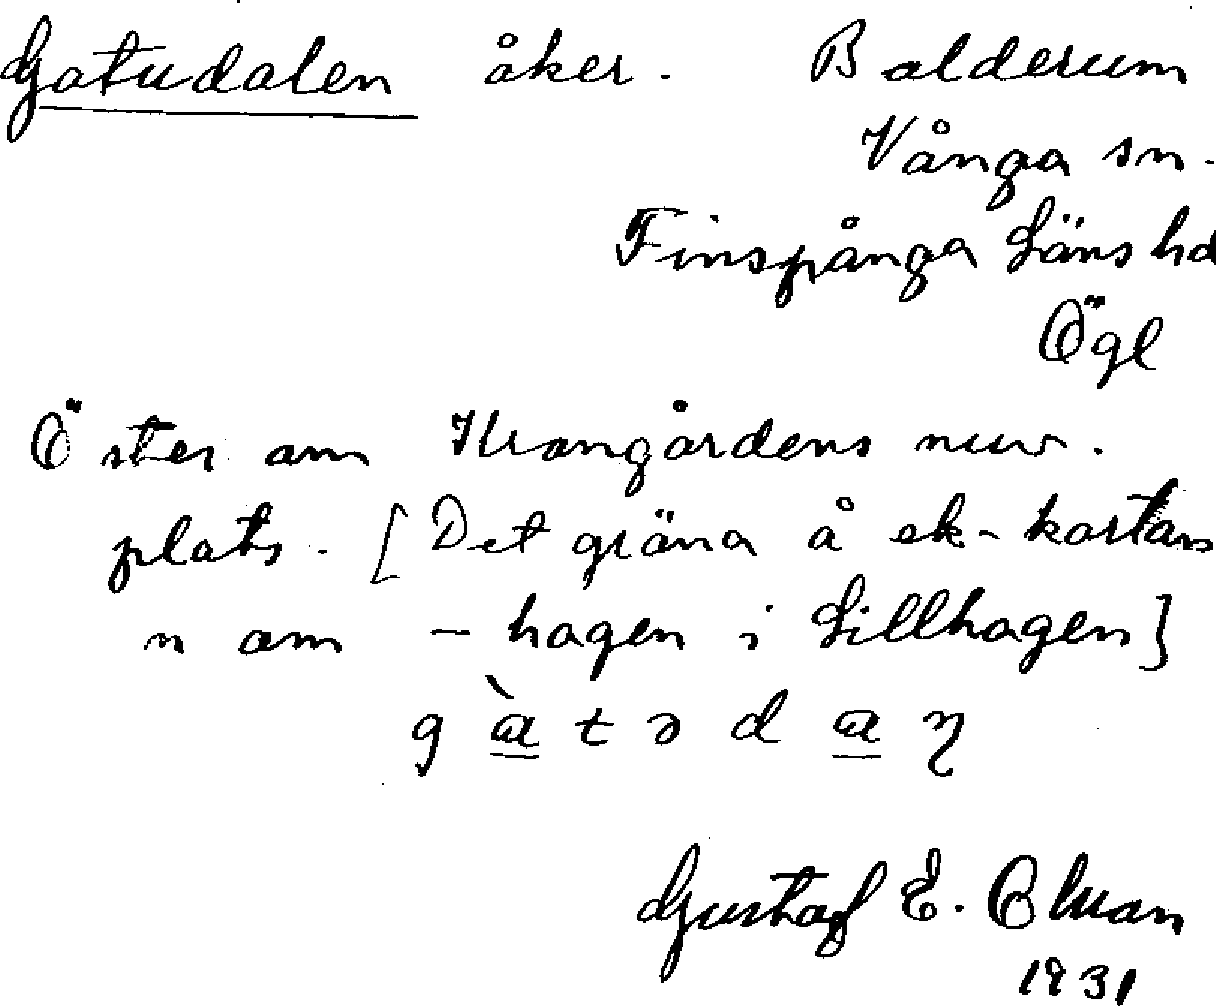 Gatudalen åker. Balderum
Vånga sn.
Finspånga Läns hd
Ögl
Öster om Krongårdens nuv.
plats. [Det gröna å ek-kartans
n om - hagen i Lillhagen]
g à t ə d a η
Gustaf E. Ohman
1931